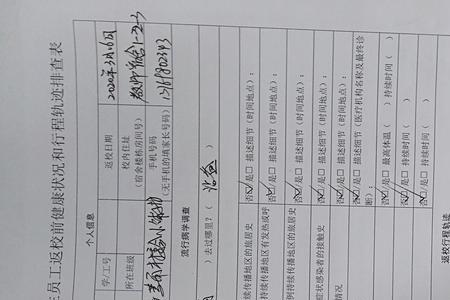 员工返校前健康状况和行程轨迹排查表
个人信息
学/工号
返校日期
2020年3月16日
所在班级
校内住址
(宿舍楼栋房间号)
教师宿舍1-2-3
手机号码
(无手机的填家长号码)
流行病学调查
)去过哪里?(
)
持续传播地区的旅居史
否☑/是☐ 描述细节(时间地点):
持续传播地区有发热或呼
否☑/是☐ 描述细节(时间地点):
例持续传播地区的旅居史
否☑/是☐ 描述细节(时间地点):
症状感染者的接触史
否☑/是☐ 描述细节(时间地点):
情况
否☑/是☐ 描述细节(医疗机构名称及最终诊
断):
否☑/是☐ 最高体温( )持续时间( )
否☑/是☐ 持续时间( )
否☑/是☐ 持续时间( )
返校行程轨迹